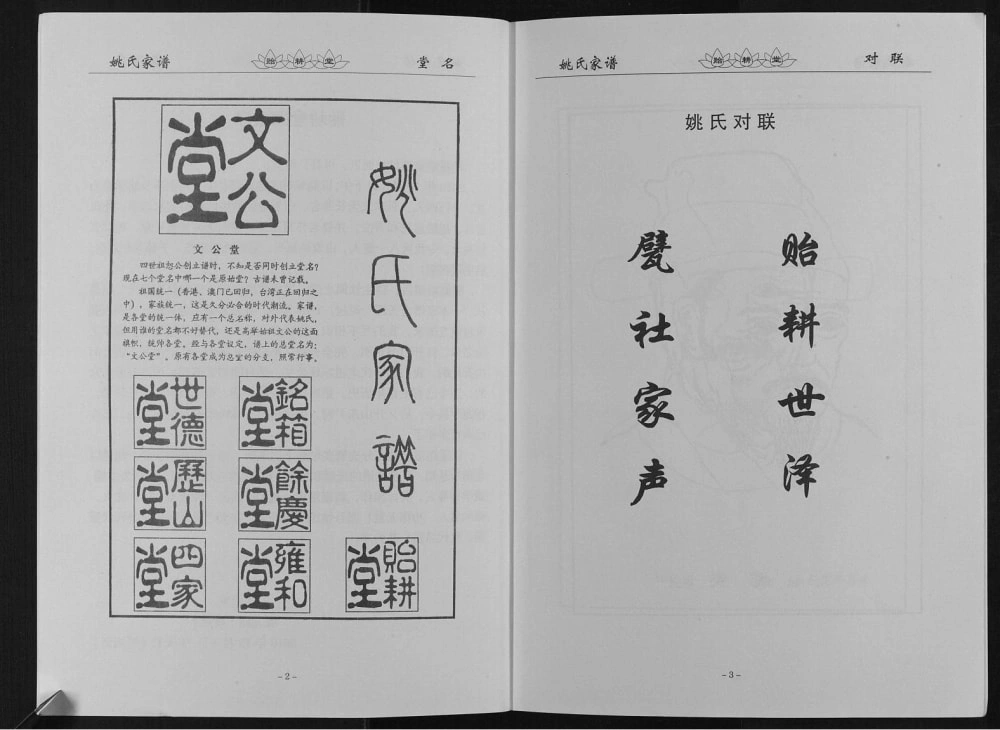 姚氏家谱
贻耕堂
堂名
文公堂
姚氏家谱
文公堂
四世祖恕公创立谱时，不知是否同时创立堂名？
现在七个堂名中哪一个是原始堂？古谱未曾记载。
祖国统一（香港、澳门已回归，台湾正在回归之
中），家族统一，这是久分必合的时代潮流。家谱，
是各堂的统一体，应有一个总名称，对外代表姚氏。
但用谁的堂名都不好替代，还是高举始祖文公的这面
旗帜，统帅各堂。经与各堂议定，谱上的总堂名为：
“文公堂”。原有各堂成为总堂的分支，照常行事。
世德堂
銘箱堂
歷山堂
餘慶堂
四家堂
雍和堂
貽耕堂
-2-
姚氏家谱
贻耕堂
对联
姚氏对联
贻耕世泽
甓社家声
-3-